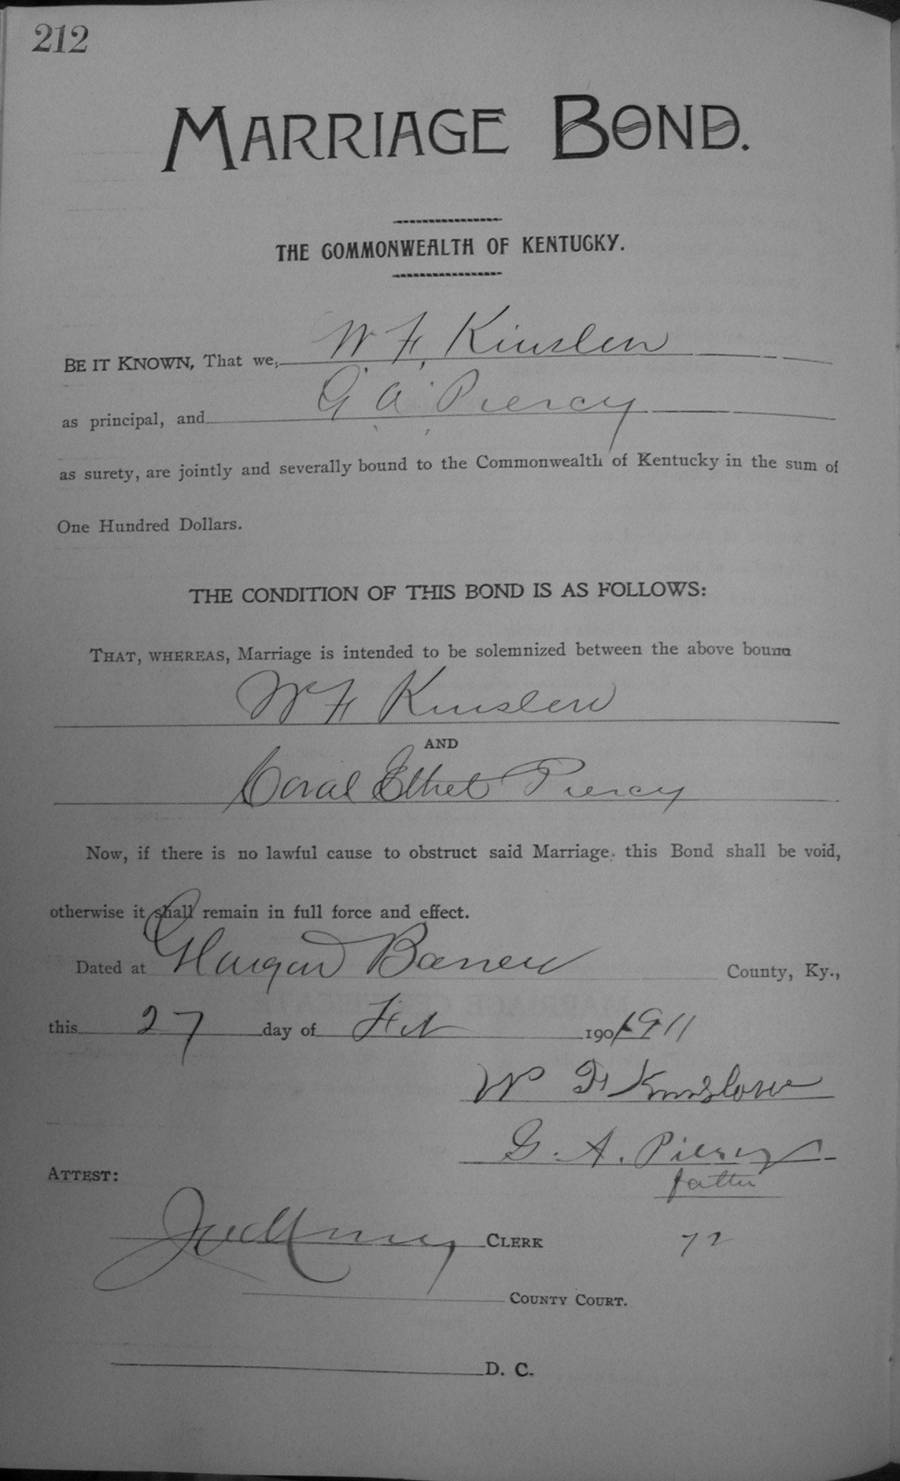 212
MARRIAGE BOND.
THE COMMONWEALTH OF KENTUCKY.
BE IT KNOWN, That we, W F. Kinslow
as principal, and G. A. Piercy
as surety, are jointly and severally bound to the Commonwealth of Kentucky in the sum of
One Hundred Dollars.
THE CONDITION OF THIS BOND IS AS FOLLOWS:
THAT, WHEREAS, Marriage is intended to be solemnized between the above bound
W F Kinslow
AND
Coral Ethel Piercy
Now, if there is no lawful cause to obstruct said Marriage, this Bond shall be void,
otherwise it shall remain in full force and effect.
Dated at Glasgow Barren County, Ky.,
this 27 day of Feb 190 1911
W F Kinslow
G. A. Piercy
ATTEST: father
CLERK 72
COUNTY COURT.
D. C.